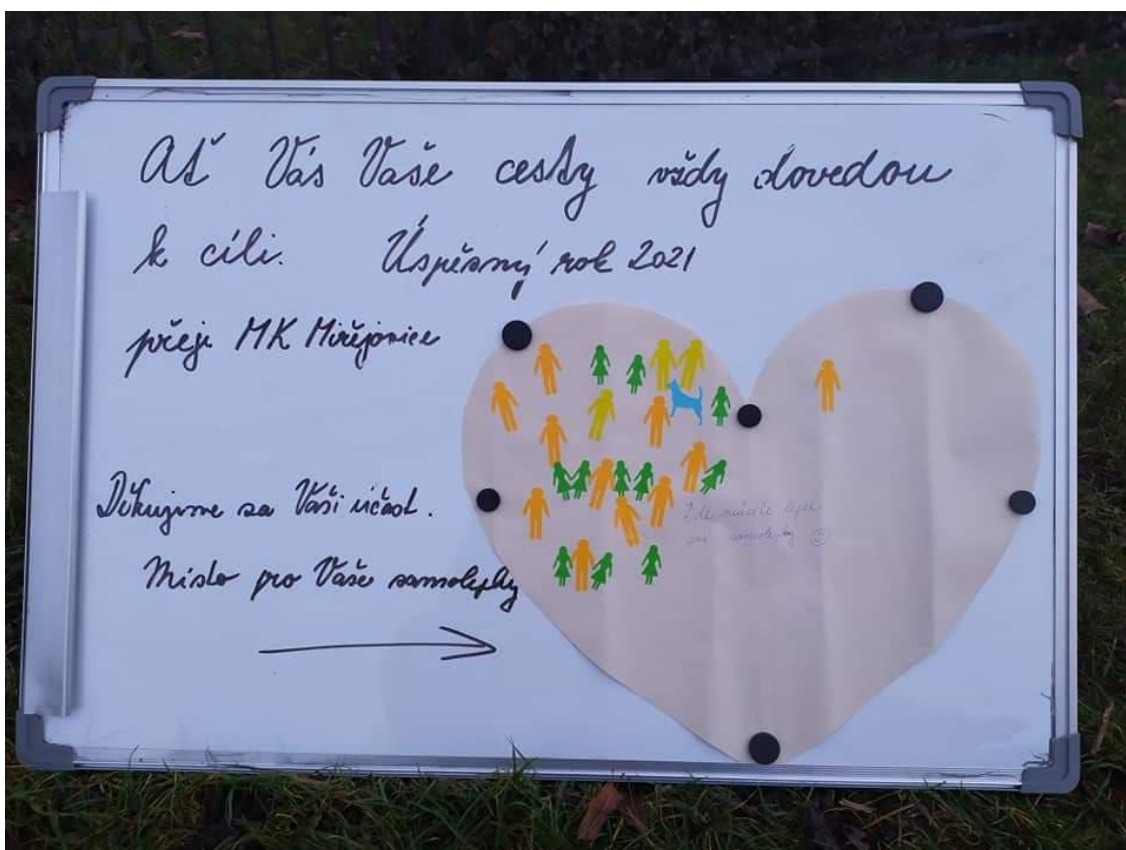 Ať Vás Vaše cesty vždy dovedou
k cíli. Úspěsný rok 2021
přeji MK Miřejovice
Děkujeme za Vaši účast.
Místo pro Vaše samolepky
Zde můžete lepit
své samolepky ☺